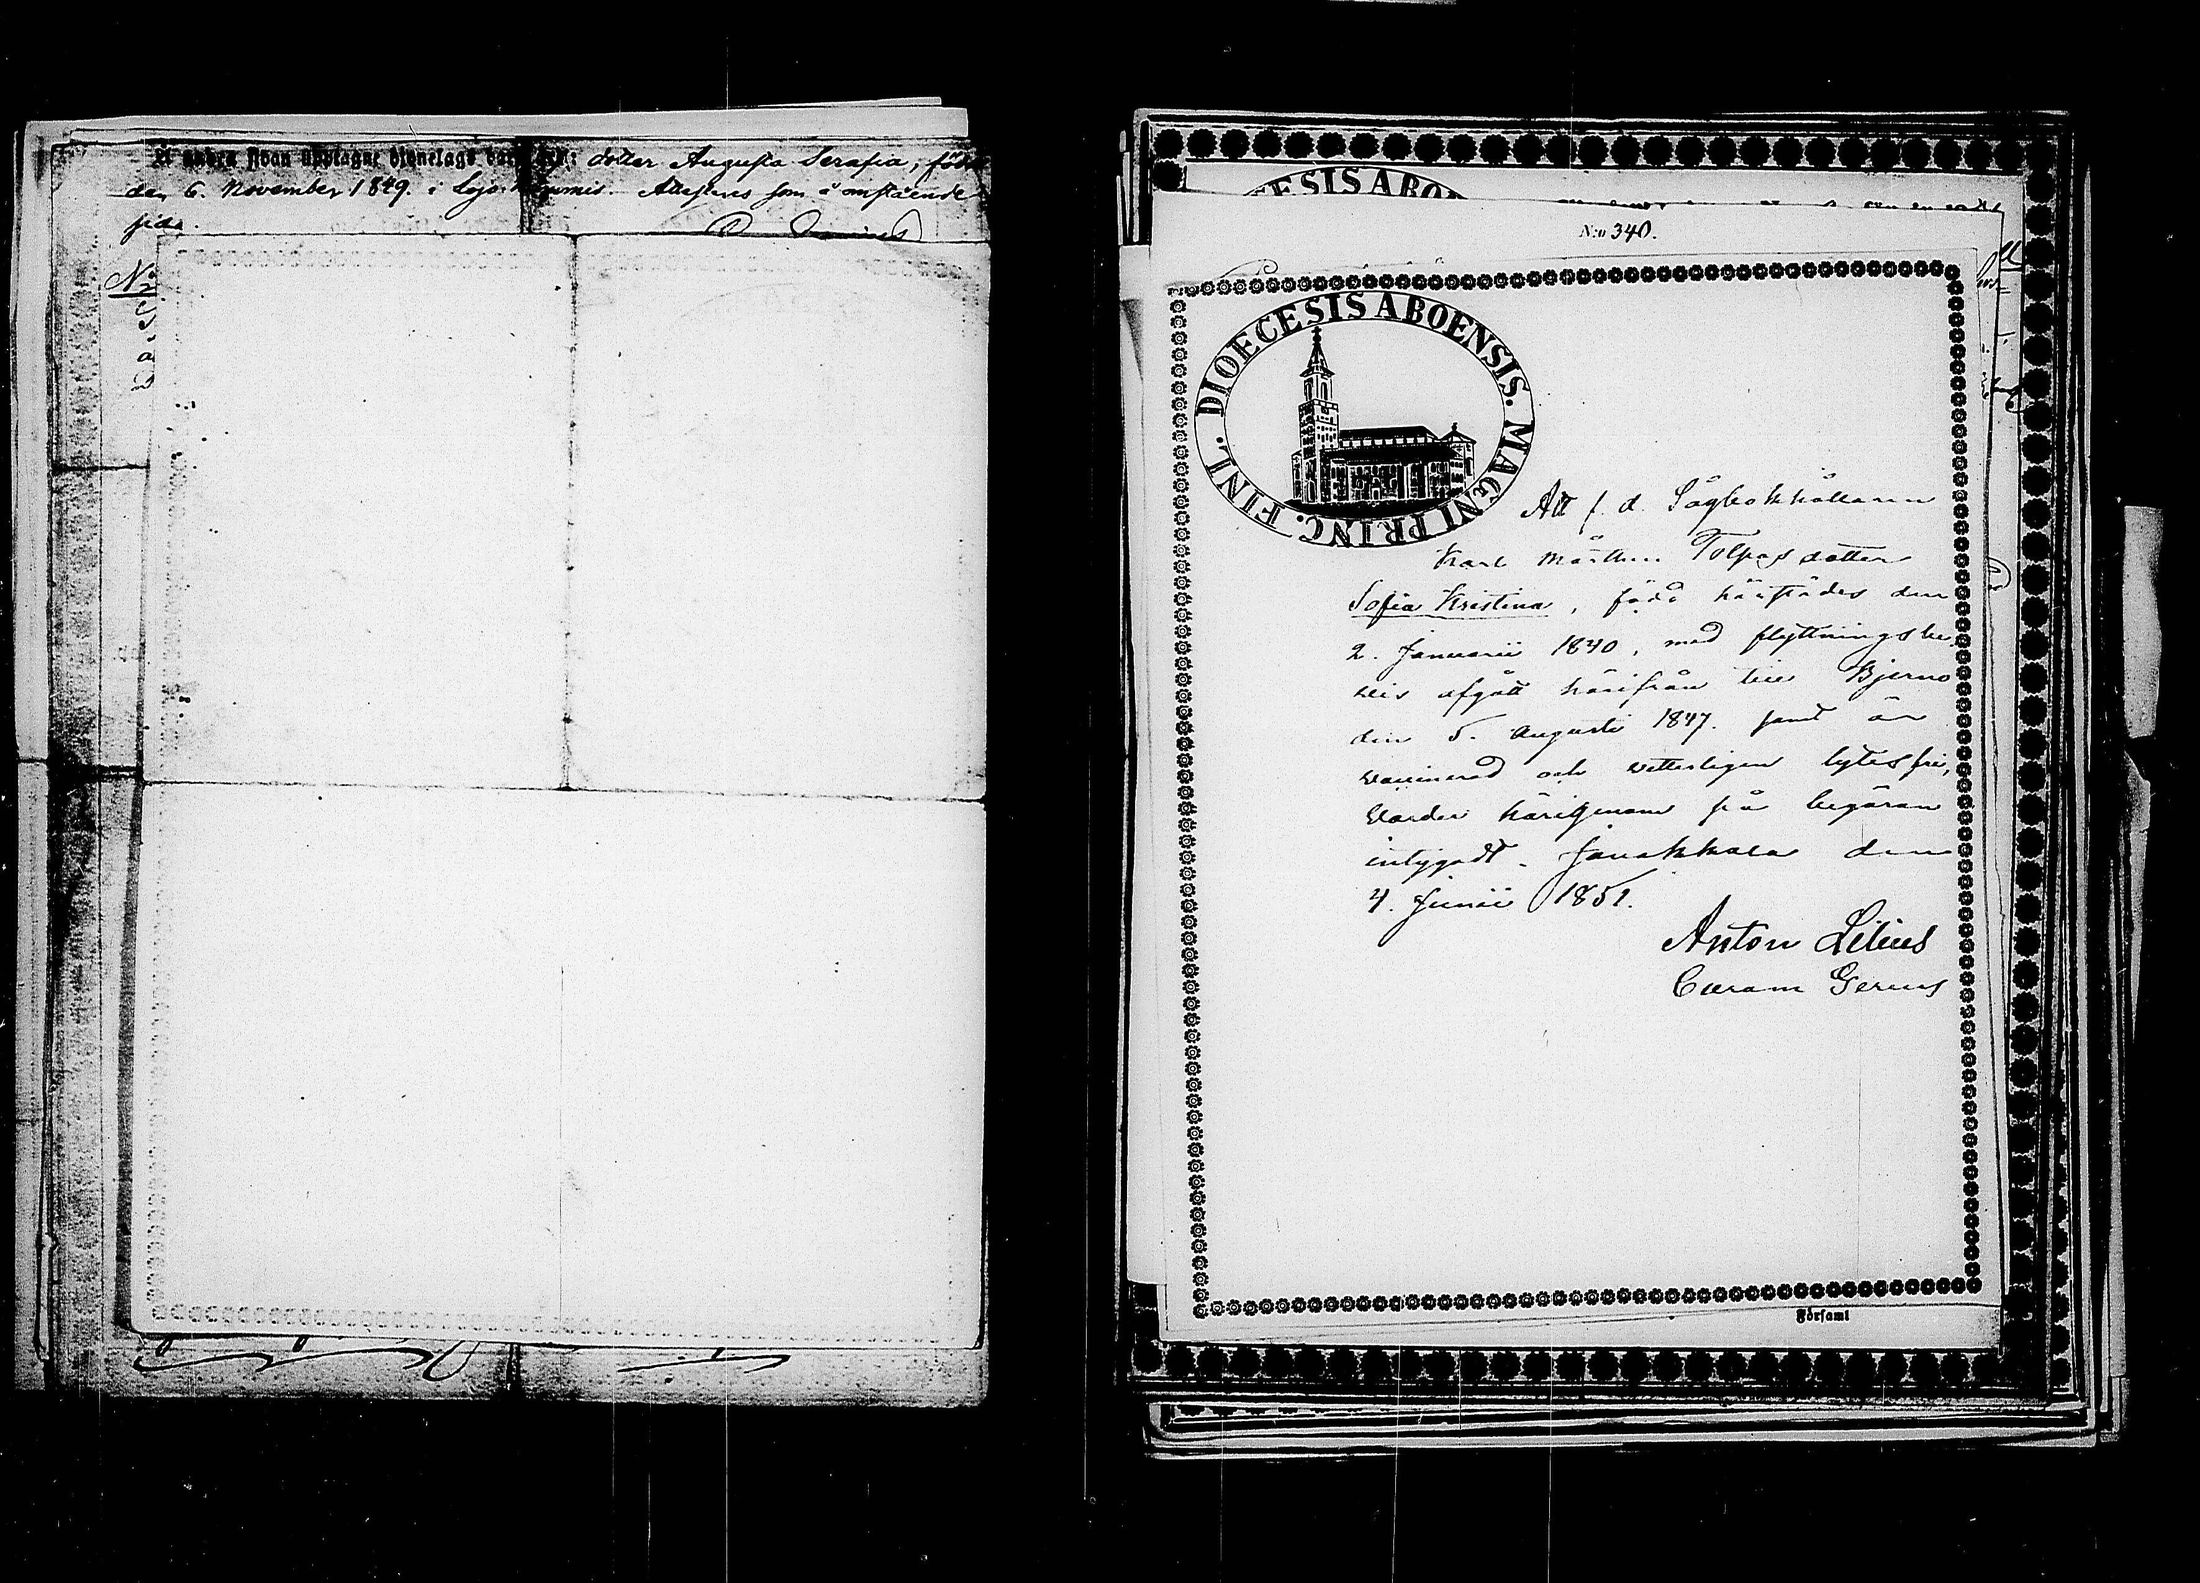 å andra sidan upptagne vidnelags barn: dotter Augusta Serafia, född
den 6. November 1849. i Lojo Attesteras som å omstående
sida.
DIOECESIS ABO
N:o 340.
DIOECESIS ABOENSIS. MAGNI PRINC. FINL.
Att f. d. Sågbokhållaren
Karl Mårthen Tolpos dotter
Sofia Kristina, född härstädes den
2. Januarii 1840, med flyttningsbe
vis afgått härifrån till Bjerno
den 5. Augusti 1847. samt är
vaccinerad och vetterligen lytesfri,
varder härigenom på begäran
intygadt. Janakkala den
4. Junii 1851.
Anton Lilius
Curam Gerens
Församl